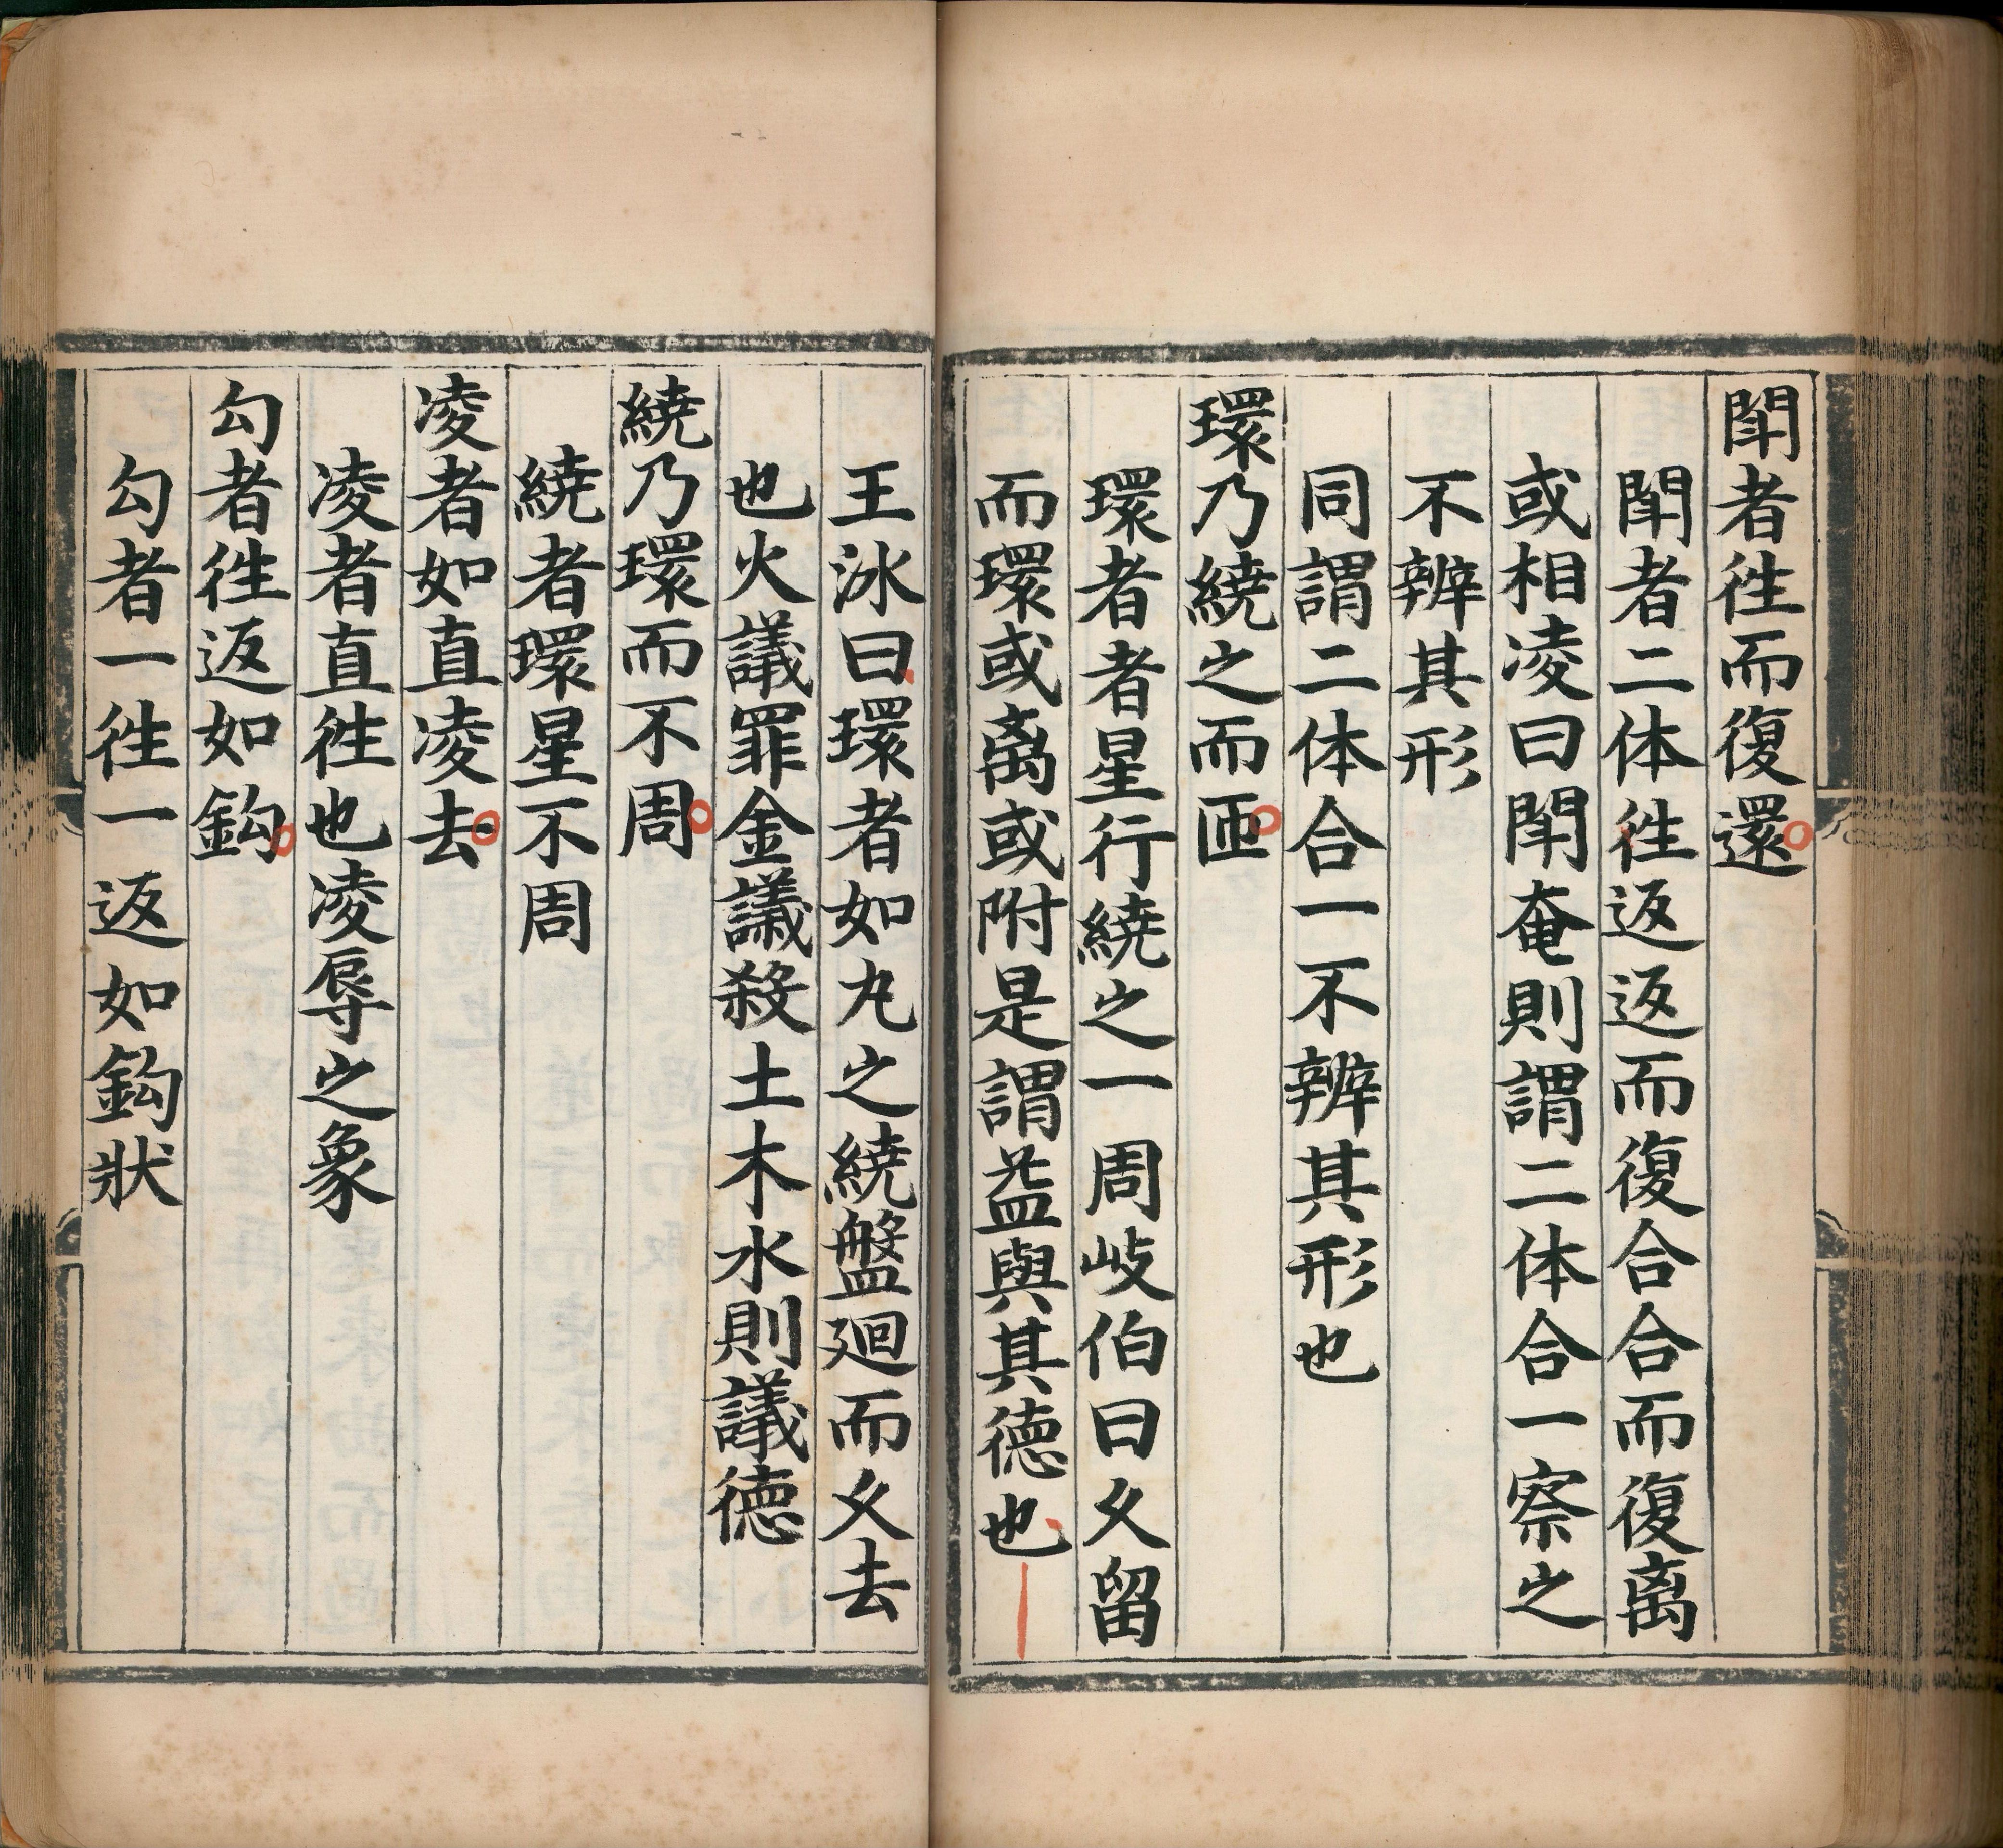 閗者徃而復還
閗者二体徃返返而復合合而復离
或相凌曰閗奄則謂二体合一察之
不辨其形
同謂二体合一不辨其形也
環乃繞之而匝
環者者星行繞之一周岐伯曰乆留
而環或离或附是謂益與其德也
王冰曰環者如丸之繞盤廻而乆去
也火議罪金議殺土木水則議德
繞乃環而不周
繞者環星不周
凌者如直凌去
凌者直徃也凌辱之象
勾者徃返如鈎
勾者一徃一返如鈎狀